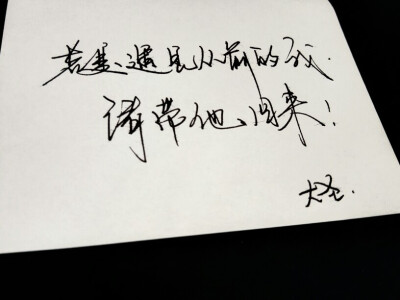 若是、遇见从前的我.
请带他、回来！
大圣.